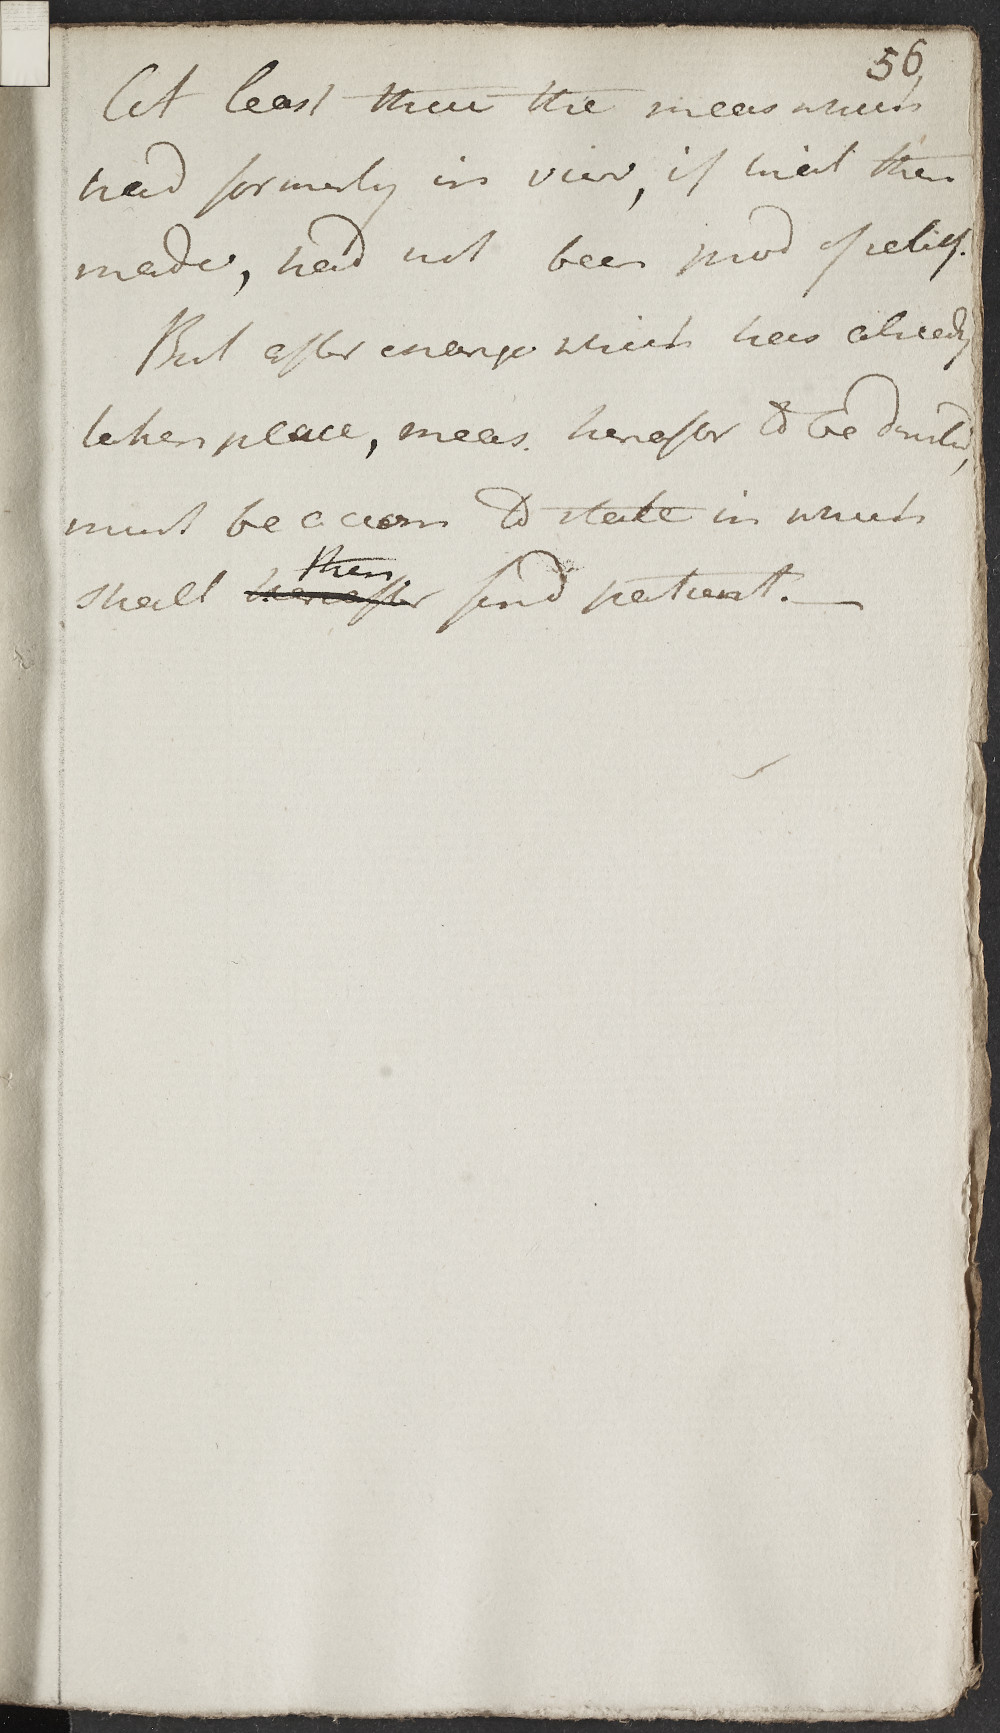 56
At least then the meas which
had formerly in view, if trial then
made, had not been prod of relief.
But after change which has already
taken place, meas. hereafter to be
must be accom to state in which
then
shall hereafter find patient. —